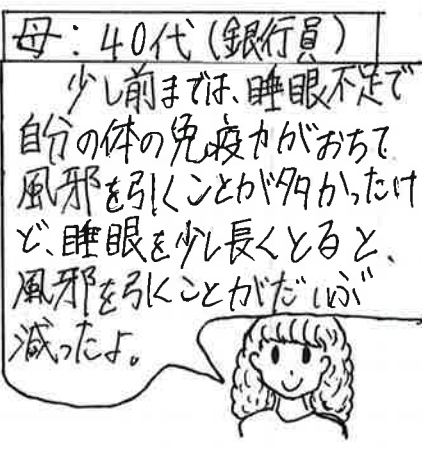 母：40代(銀行員)
少し前までは、睡眠不足で
自分の体の免疫力がおちて
風邪を引くことが多かったけ
ど、睡眠を少し長くとると、
風邪を引くことがだいぶ
減ったよ。